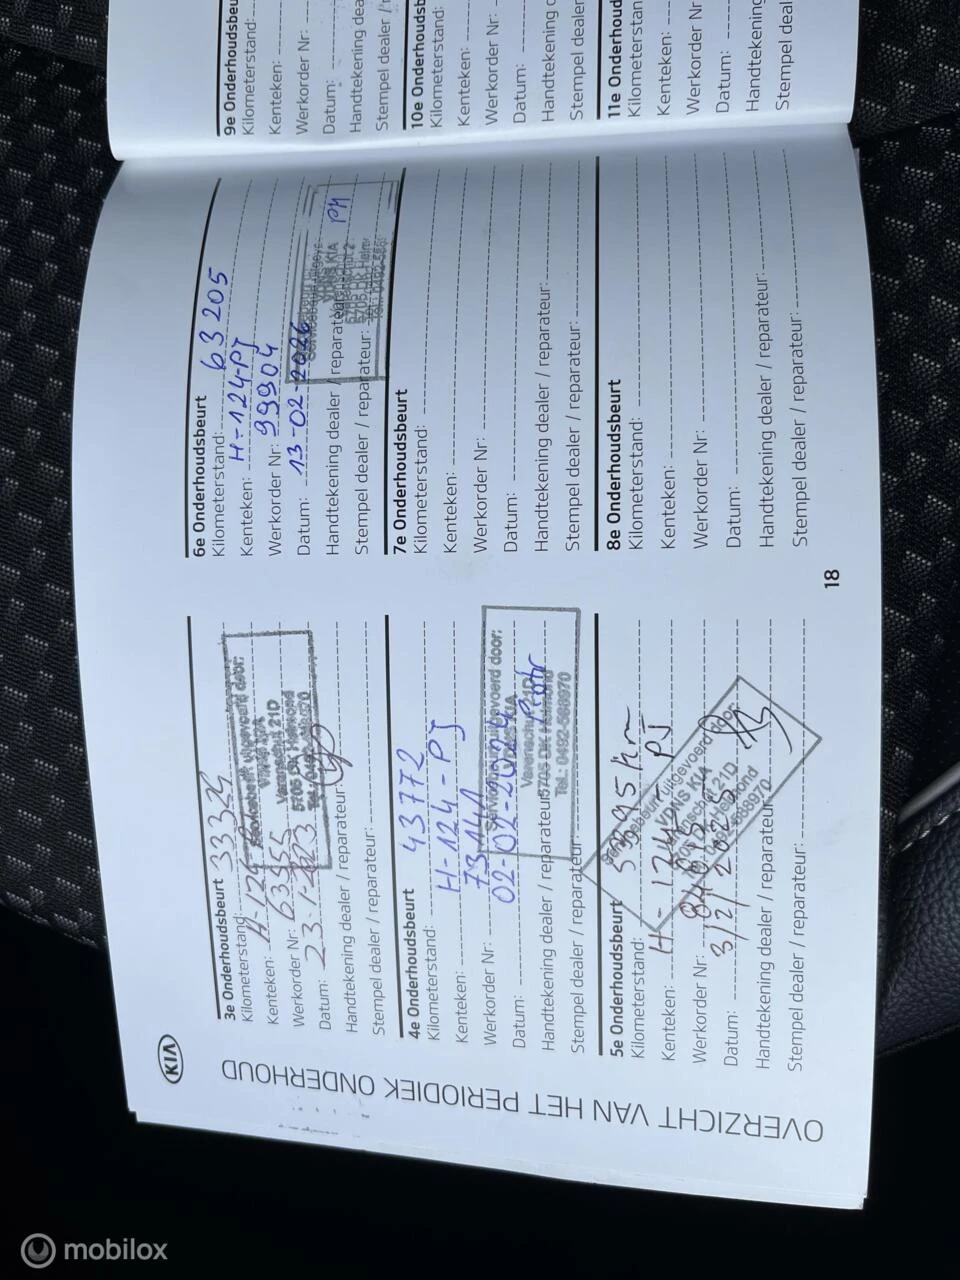 KIA
OVERZICHT VAN HET PERIODIEK ONDERHOUD
3e Onderhoudsbeurt
Kilometerstand: 33324
Kenteken: H-124-
Werkorder Nr: 63955
Datum: 23-1-
Handtekening dealer / reparateur:
Stempel dealer / reparateur:
Servicebeurt uitgevoerd door:
VDNS KIA
Varenschut 21D
5705 DK Helmond
4e Onderhoudsbeurt
Kilometerstand: 43772
Kenteken: H-124-PJ
Werkorder Nr: 73141
Datum: 02-02-2024
Handtekening dealer / reparateur:
Stempel dealer / reparateur:
Servicebeurt uitgevoerd door:
VDNS KIA
Varenschut 21D
5705 DK Helmond
Tel.: 0492-588970
5e Onderhoudsbeurt
Kilometerstand: 53695 km
Kenteken: H-124-PJ
Werkorder Nr:
Datum: 3/2/2025
Handtekening dealer / reparateur:
Stempel dealer / reparateur:
VDNS KIA
6e Onderhoudsbeurt
Kilometerstand: 63205
Kenteken: H-124-PJ
Werkorder Nr: 99904
Datum: 13-02-2026
Handtekening dealer / reparateur:
Stempel dealer / reparateur:
7e Onderhoudsbeurt
Kilometerstand:
Kenteken:
Werkorder Nr:
Datum:
Handtekening dealer / reparateur:
Stempel dealer / reparateur:
8e Onderhoudsbeurt
Kilometerstand:
Kenteken:
Werkorder Nr:
Datum:
Handtekening dealer / reparateur:
Stempel dealer / reparateur:
18
9e Onderhoudsbeu
Kilometerstand:
Kenteken:
Werkorder Nr:
Datum:
Handtekening dea
Stempel dealer /
10e Onderhoudsb
Kilometerstand:
Kenteken:
Werkorder Nr:
Datum:
Handtekening d
Stempel dealer
11e Onderhoud
Kilometerstan
Kenteken:
Werkorder Nr
Datum:
Handtekening
Stempel deal
mobilox